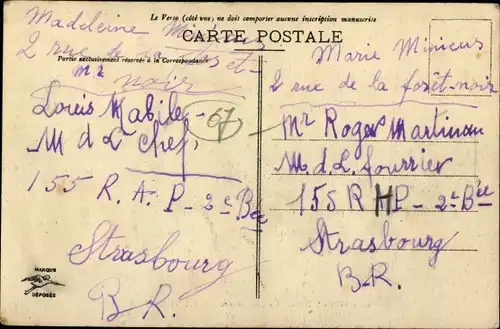 Le Verso (côté vue) ne doit comporter aucune inscription manuscrite
CARTE POSTALE
Partie exclusivement réservée à la Correspondance
Madeleine
2 rue de la forêt-
noir
Mr
Louis Mabile
M d L chef
155 R. A. P - 2e Bie
Strasbourg
B. R.
67
Marie Minicus
2 rue de la forêt-noir
Mr Roger Martineau
M. d. L. fourrier
155 R HP - 2e Bie
Strasbourg
B. R.
MARQUE
DÉPOSÉE